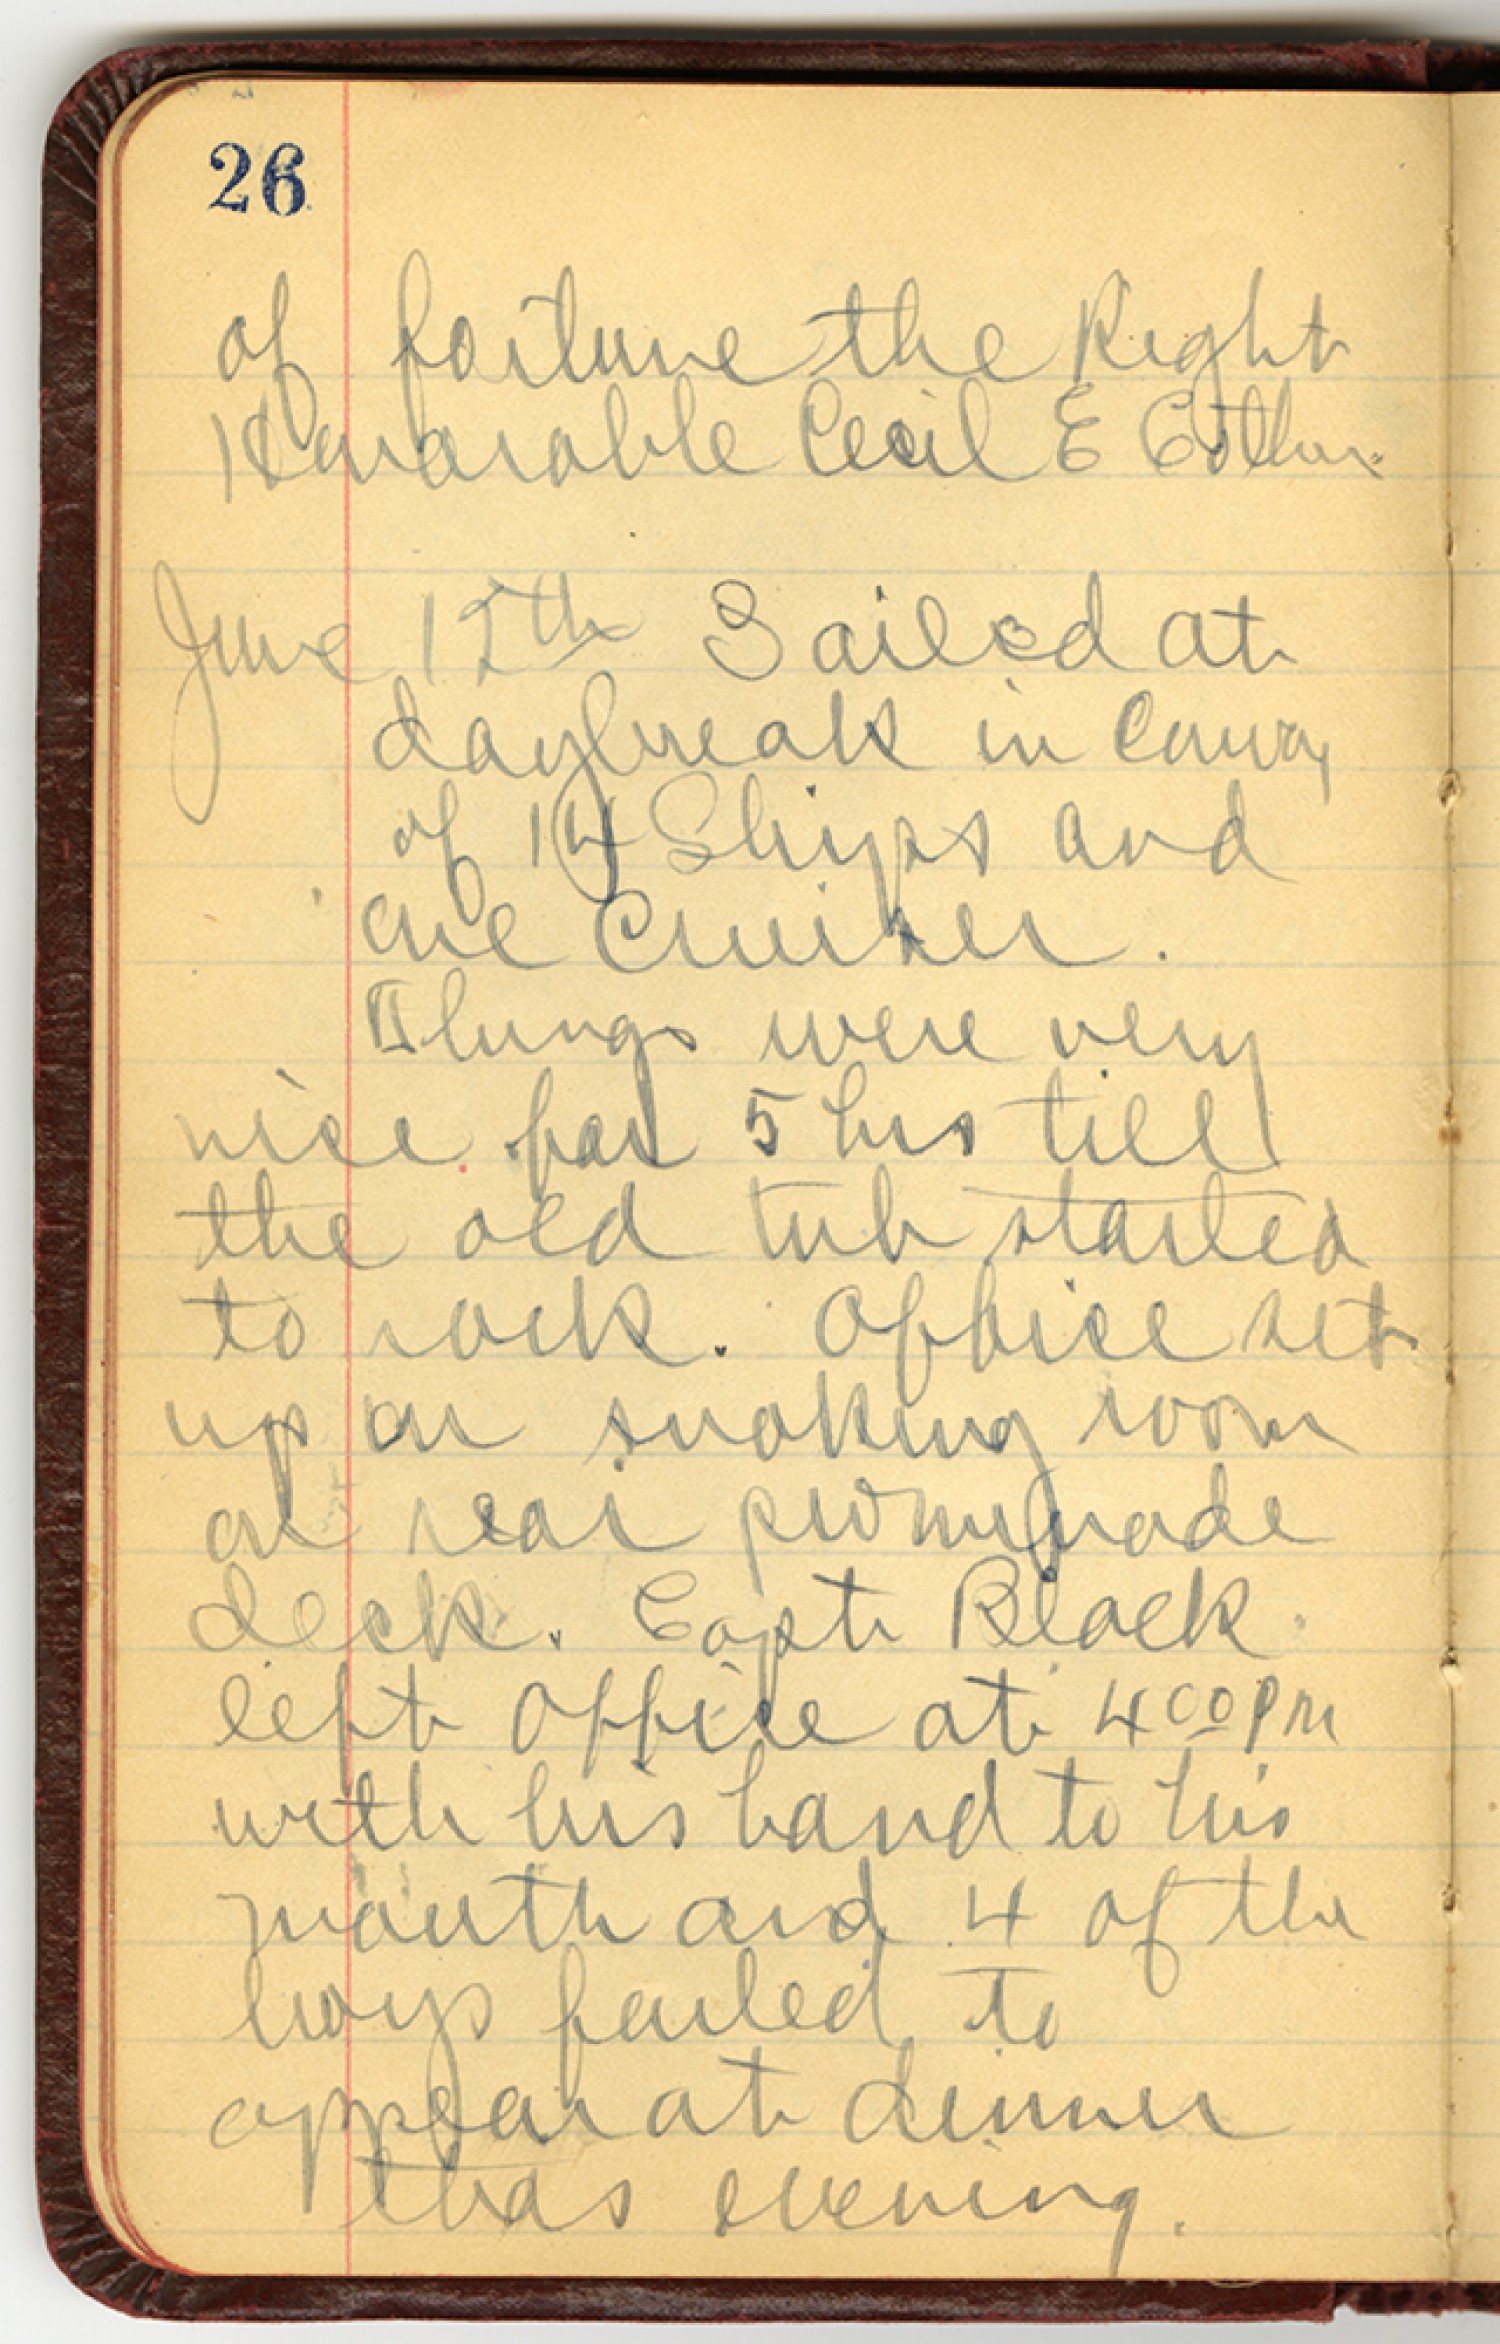 26
of fortune the Right
Honorable Cecil E
June 15th Sailed at
daybreak in Convoy
of 14 Ships and
one Cruiser.
Things were very
nice for 5 hrs till
the old tub started
to rock. Office set
up on smoking room
on rear promenade
deck. Capt Black
left office at 4 00 PM
with his hand to his
mouth and 4 of the
boys failed to
appear at dinner
this evening.